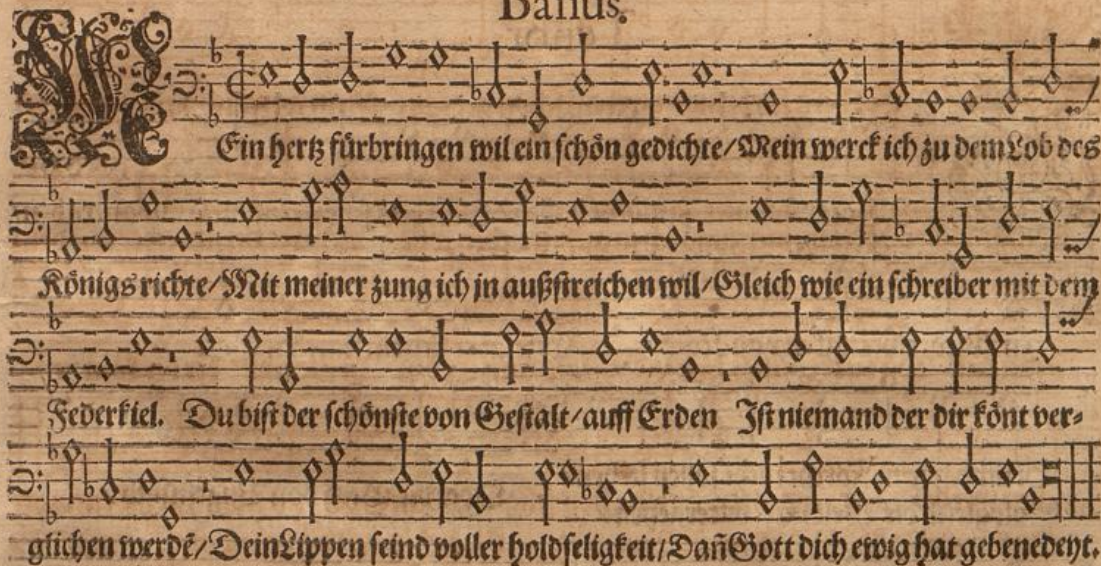 Bassus.
MEin hertz fürbringen wil ein schön gedichte/Mein werck ich zu dem Lob des
Königs richte/Mit meiner zung ich jn außstreichen wil/Gleich wie ein schreiber mit dem
Federkiel. Du bist der schönste von Gestalt/auff Erden Ist niemand der dir könt ver-
glichen werdē/Dein Lippen seind voller holdseligkeit/Dañ Gott dich ewig hat gebenedeyt.